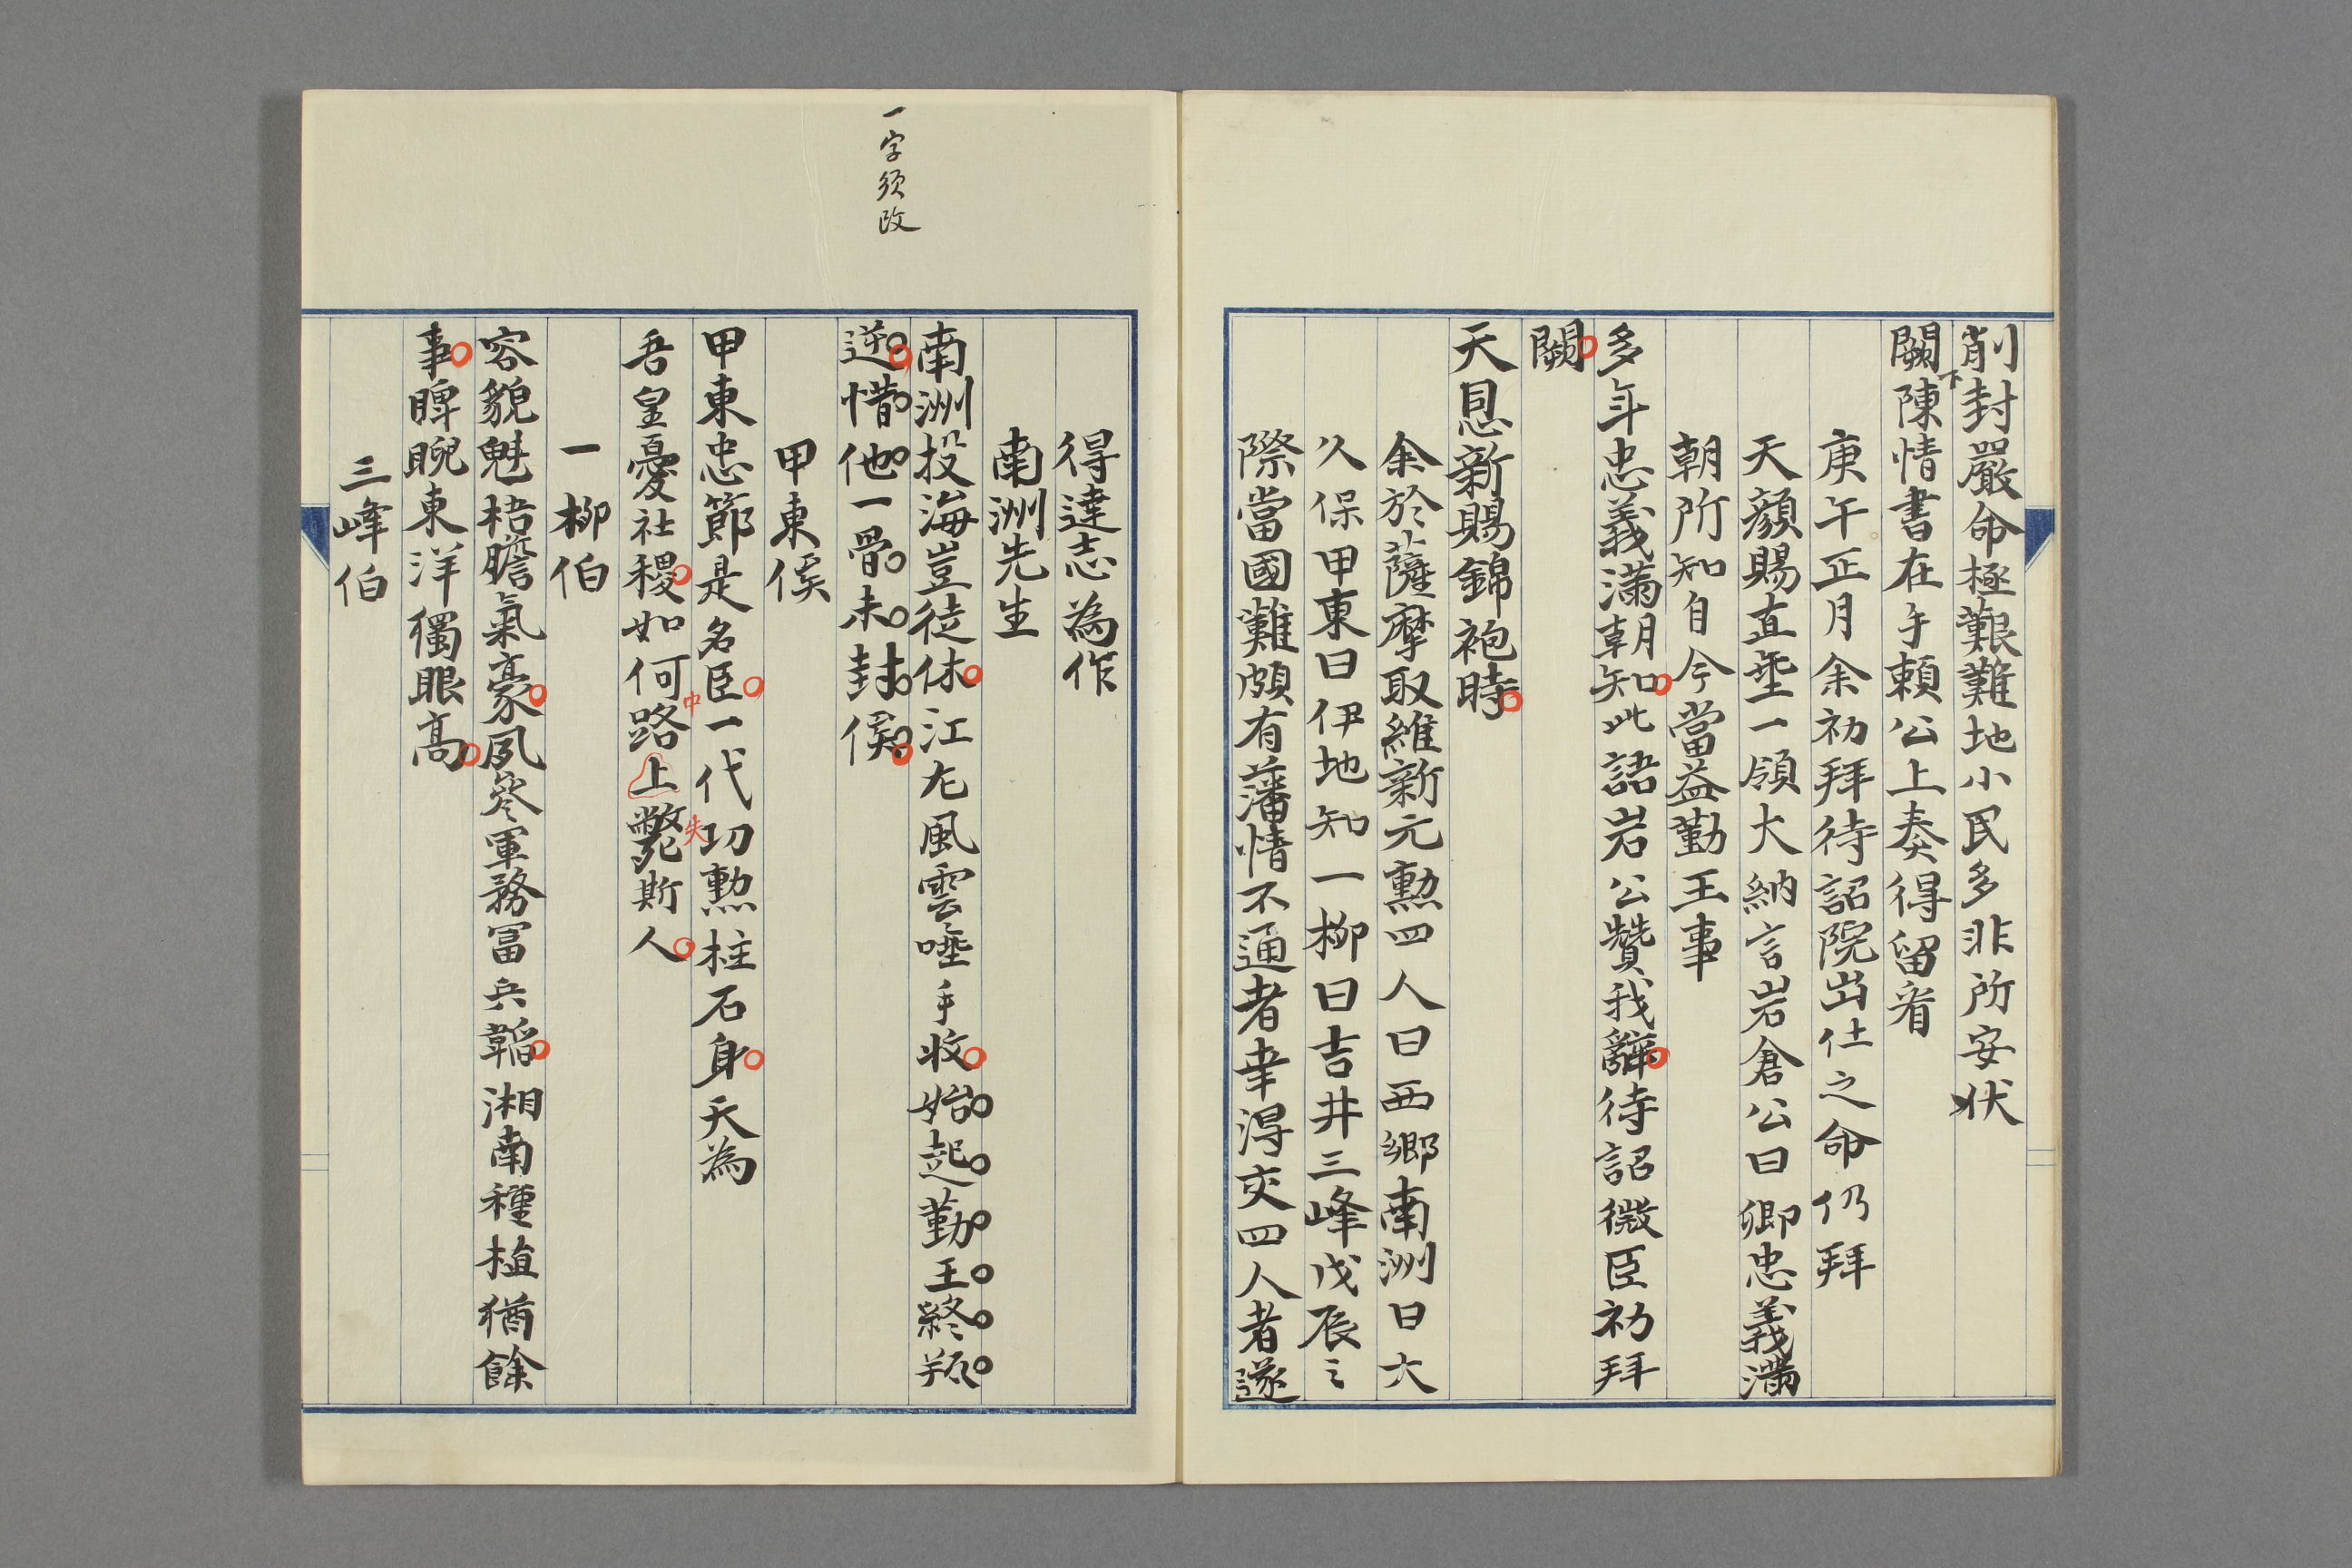 削封嚴命極艱難地小民多非所安伏
闕下陳情書在手賴公上奏得留看
庚午正月余初拜待詔院出仕之命仍拜
天顏賜直埀一領大納言岩倉公曰卿忠義滿
朝所知自今當益勤王事
多年忠義滿朝知此語岩公贊我辭待詔微臣初拜
闕
天恩新賜錦袍時
余於薩摩取維新元勲四人曰西鄉南洲曰大
久保甲東曰伊地知一柳曰吉井三峰戊辰之
際當國難頗有藩情不通者幸得交四人者遂
得達志為作
南洲先生
一字須改
南洲投海豈徒休江左風雲唾手收始起勤王終叛
逆惜他一骨未封侯
甲東侯
甲東忠節是名臣一代功勲柱石身天為
吾皇憂社稷如何路上斃斯人
中
失
一柳伯
容貌魁梧膽氣豪夙參軍務冨兵韜湘南種植猶餘
事睥睨東洋獨眼高
三峰伯